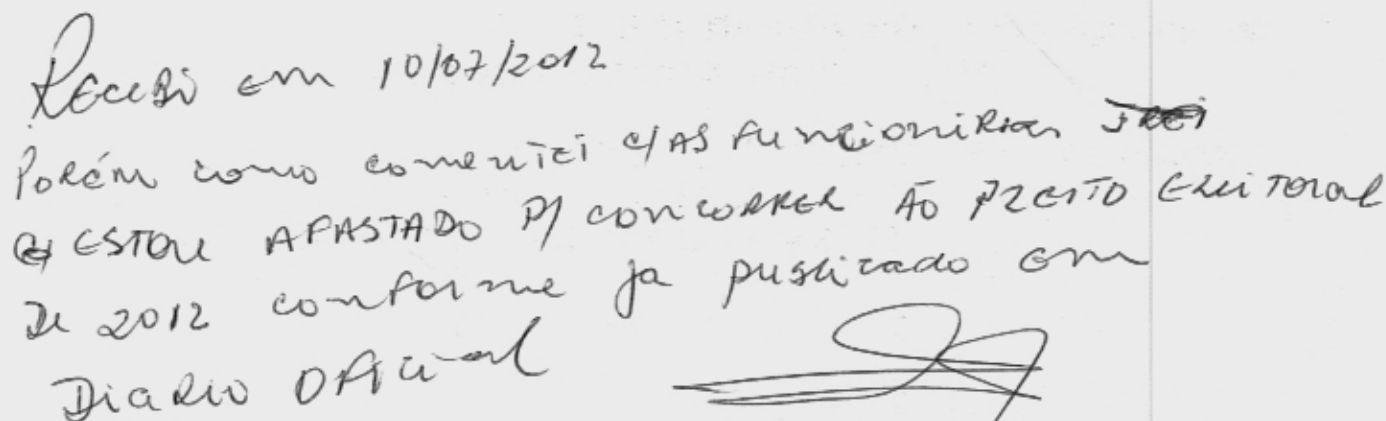 Recebi em 10/07/2012
Porém como comentei c/ as funcionárias
estou afastado p/ concorrer ao pleito eleitoral
de 2012 conforme ja publicado em
Diario Oficial